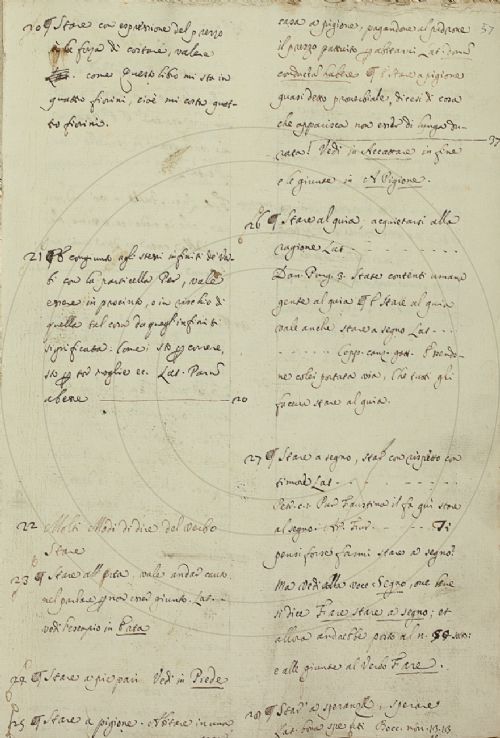 20 ¶ Stare con espressione del prezzo
à la forza di costare, valere
come Questo libro mi sta in
quattro fiorini, cioè mi costa quat-
tro fiorini.
21 ¶ congiunto agli stessi infiniti de Ver-
bi con la particella Per, vale
essere in procinto, o in rischio di
quella tal cosa da quegli infiniti
significata. Come: sto p correre,
sto p tor moglie ec. Lat. Parum
abesse 20
22 Molti Modi di dire del Verbo
Stare
23 ¶ Stare all' vale andar cauto
nel parlare p non esser giunto. Lat.
vedi l'esempio in
24 ¶ Stare a piè pari Vedi in Piede
25 ¶ Stare a pigione. Abitare in una
57
casa a pigione, pagandone al padrone
il prezzo pattuito p abitarvi Lat.
conducta habere ¶ Stare a pigione
quasi detto proverbiale, dicesi di cosa
che apparisca non esser di lunga du-
rata! Vedi in Accattare in fine
37
e le giunte in A Pigione.
26 ¶ Stare al quia, acquietarsi alla
ragione Lat.
Dan. Purg. 3. State contenti umana
gente al quia ¶ Stare al quia
vale anche stare a segno Lat.
Copp. canz. E
ne colei tutti gli
faceva stare al quia.
27 ¶ Stare a segno, star con rispetto con
timore Lat.
Faustina il fa qui stare
al segno. Ti
pensi forse farmi stare a segno?
Ma vedi alla voce Segno, ove bene
si dice Fare stare a segno; et
allora andrebbe posto al n. 59
e alle giunte al Verbo Fare.
28 ¶ Star a speranza, sperare
Lat. bona spe Bocc. nov. 13.13